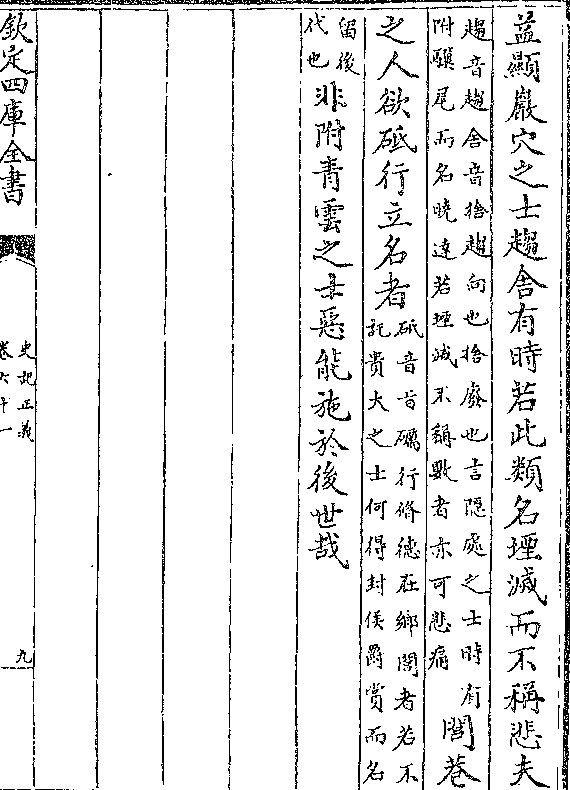 益顯巖穴之士趨舍有時若此類名堙滅而不稱悲夫
趨音趨舍音捨趨向也捨廢也言隱處之士時有
附驥尾而名曉達若堙滅不稱數者亦可悲痛
閭巷
之人欲砥行立名者
砥音旨礪行脩德在鄉閭者若不
託貴大之士何得封侯爵賞而名
留後
代也
非附青雲之士惡能施於後世哉
欽定四庫全書
史記正義
卷六十一
九